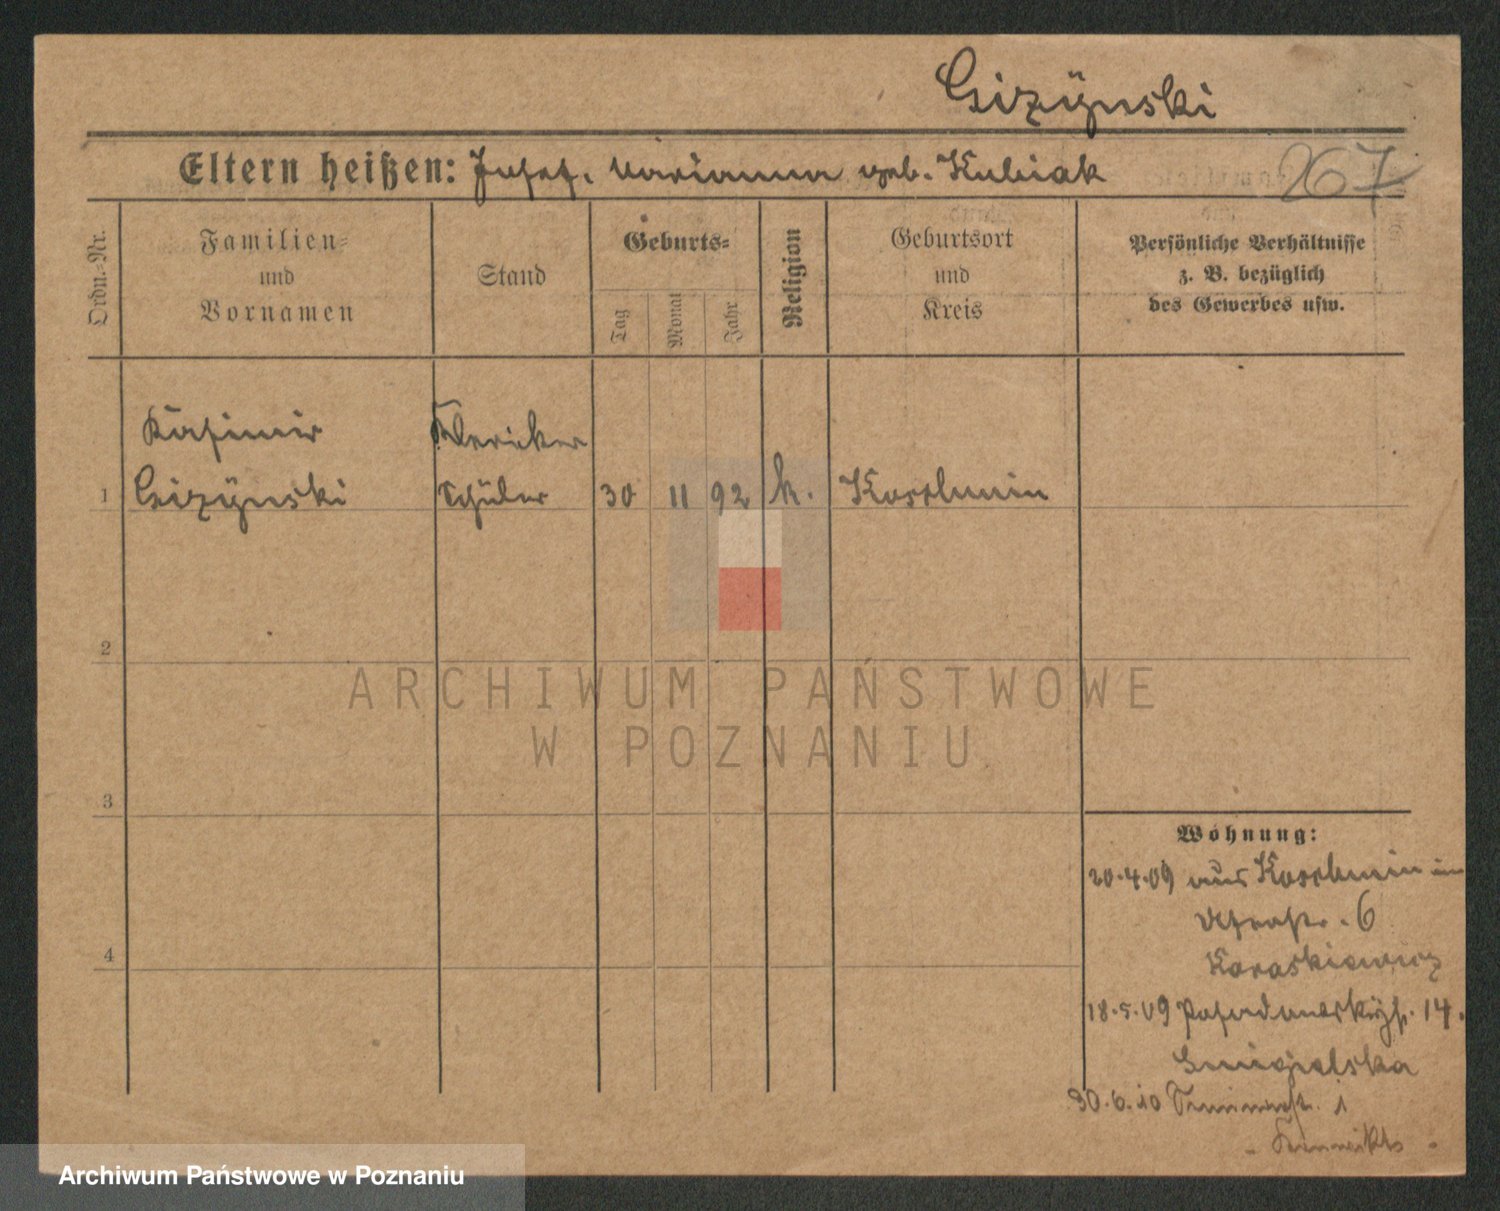 Gizÿnski
Eltern heißen: Josef. Marianna geb. Kubiak
267
Ordn.-Nr.
Familien-
und
Vornamen
Stand
Geburts-
Tag
Monat
Jahr
Religion
Geburtsort
und
Kreis
Persönliche Verhältnisse
z. B. bezüglich
des Gewerbes usw.
Kasimir
1 Gizÿnski Schüler 30 11 92 k. Koschmin
2
3
4
ARCHIWUM PAŃSTWOWE
W POZNANIU
Wohnung:
20.4.09 aus Koschmin in
6
Karaskiewicz
18.5.09 14.
Smigielska
30.6.10 1
Archiwum Państwowe w Poznaniu